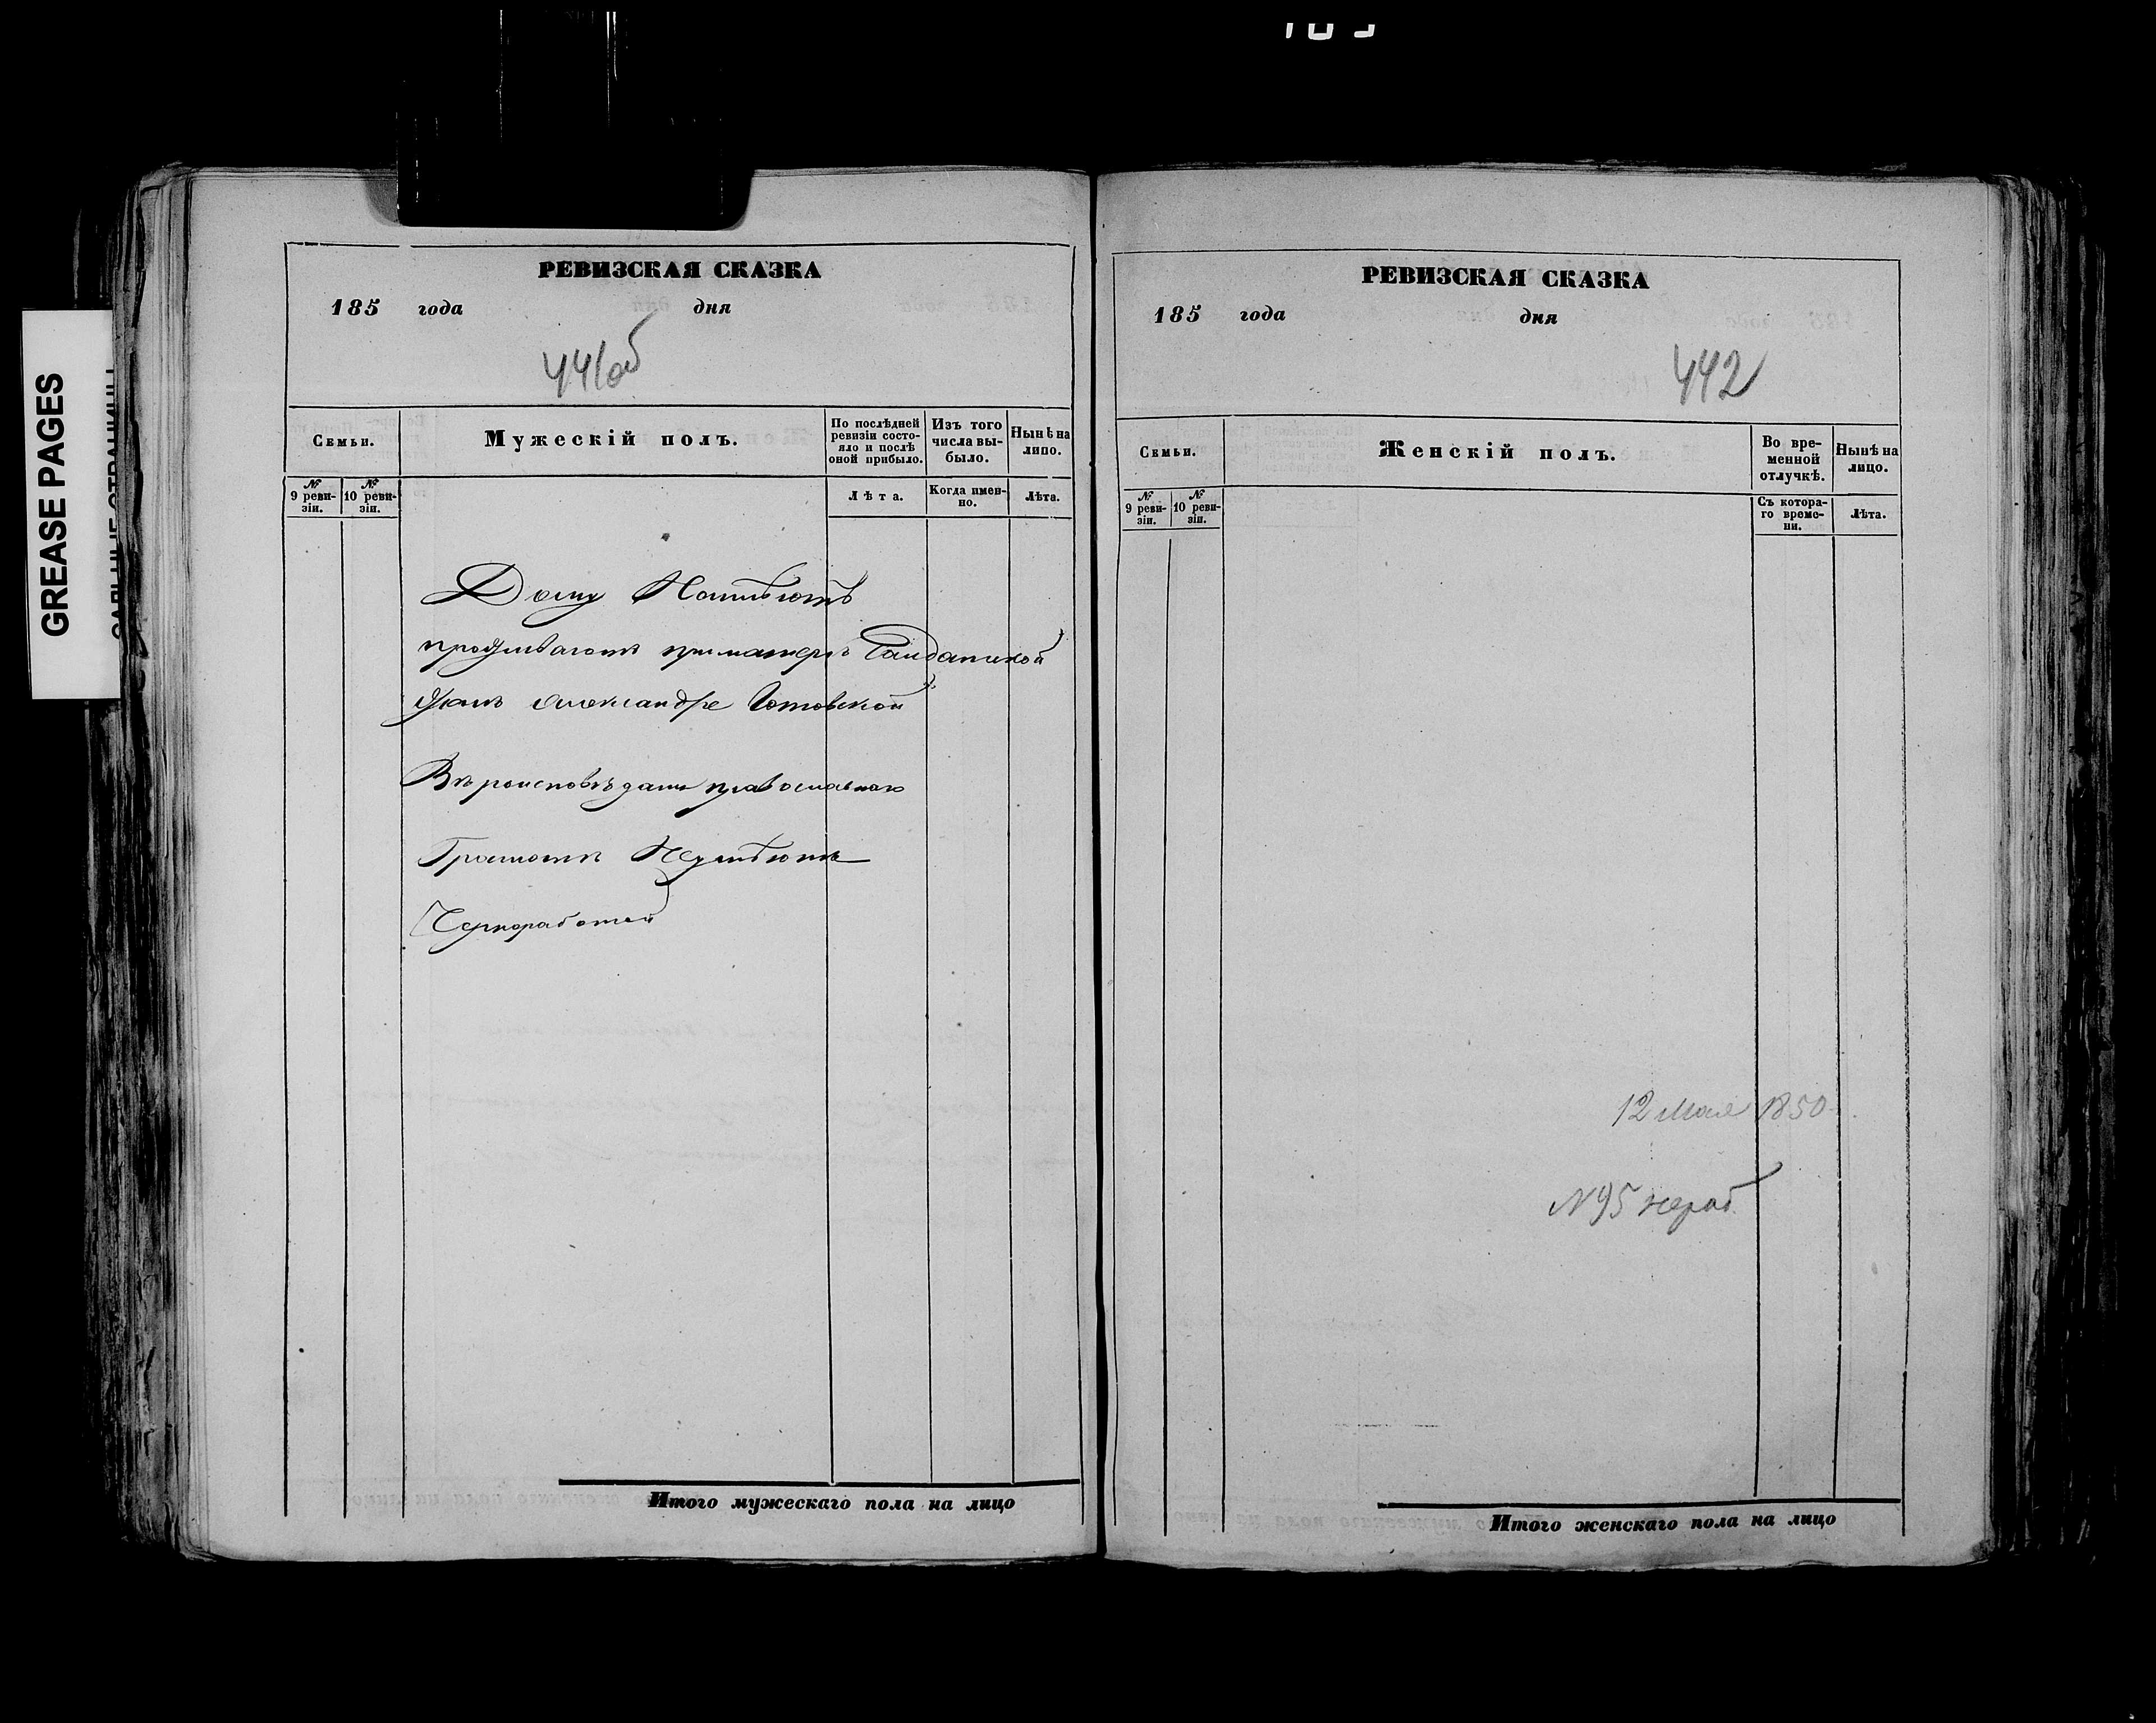 GREASE PAGES
РЕВИЗСКАЯ СКАЗКА
185 года дня
441об
Семьи.
Мужескій полъ.
По послѣдней ревизіи состояло и послѣ оной прибыло.
Изъ того числа выбыло.
Нынѣ на лицо.
№ 9 ревизіи.
№ 10 ревизіи.
Лѣта.
Когда именно.
Лѣта.
Дому Неимѣютъ
проживаютъ при матери Солдатской
женѣ Александре
Вѣроисповѣданія православнаго
Грамотѣ Неумѣютъ
Чернорабочей
Итого мужескаго пола на лицо
РЕВИЗСКАЯ СКАЗКА
185 года дня
442
Семьи.
Женскій полъ.
Во временной отлучкѣ.
Нынѣ на лицо.
№ 9 ревизіи.
№ 10 ревизіи.
Съ котораго времени.
Лѣта.
12 Мая 1850
N 95
Итого женскаго пола на лицо